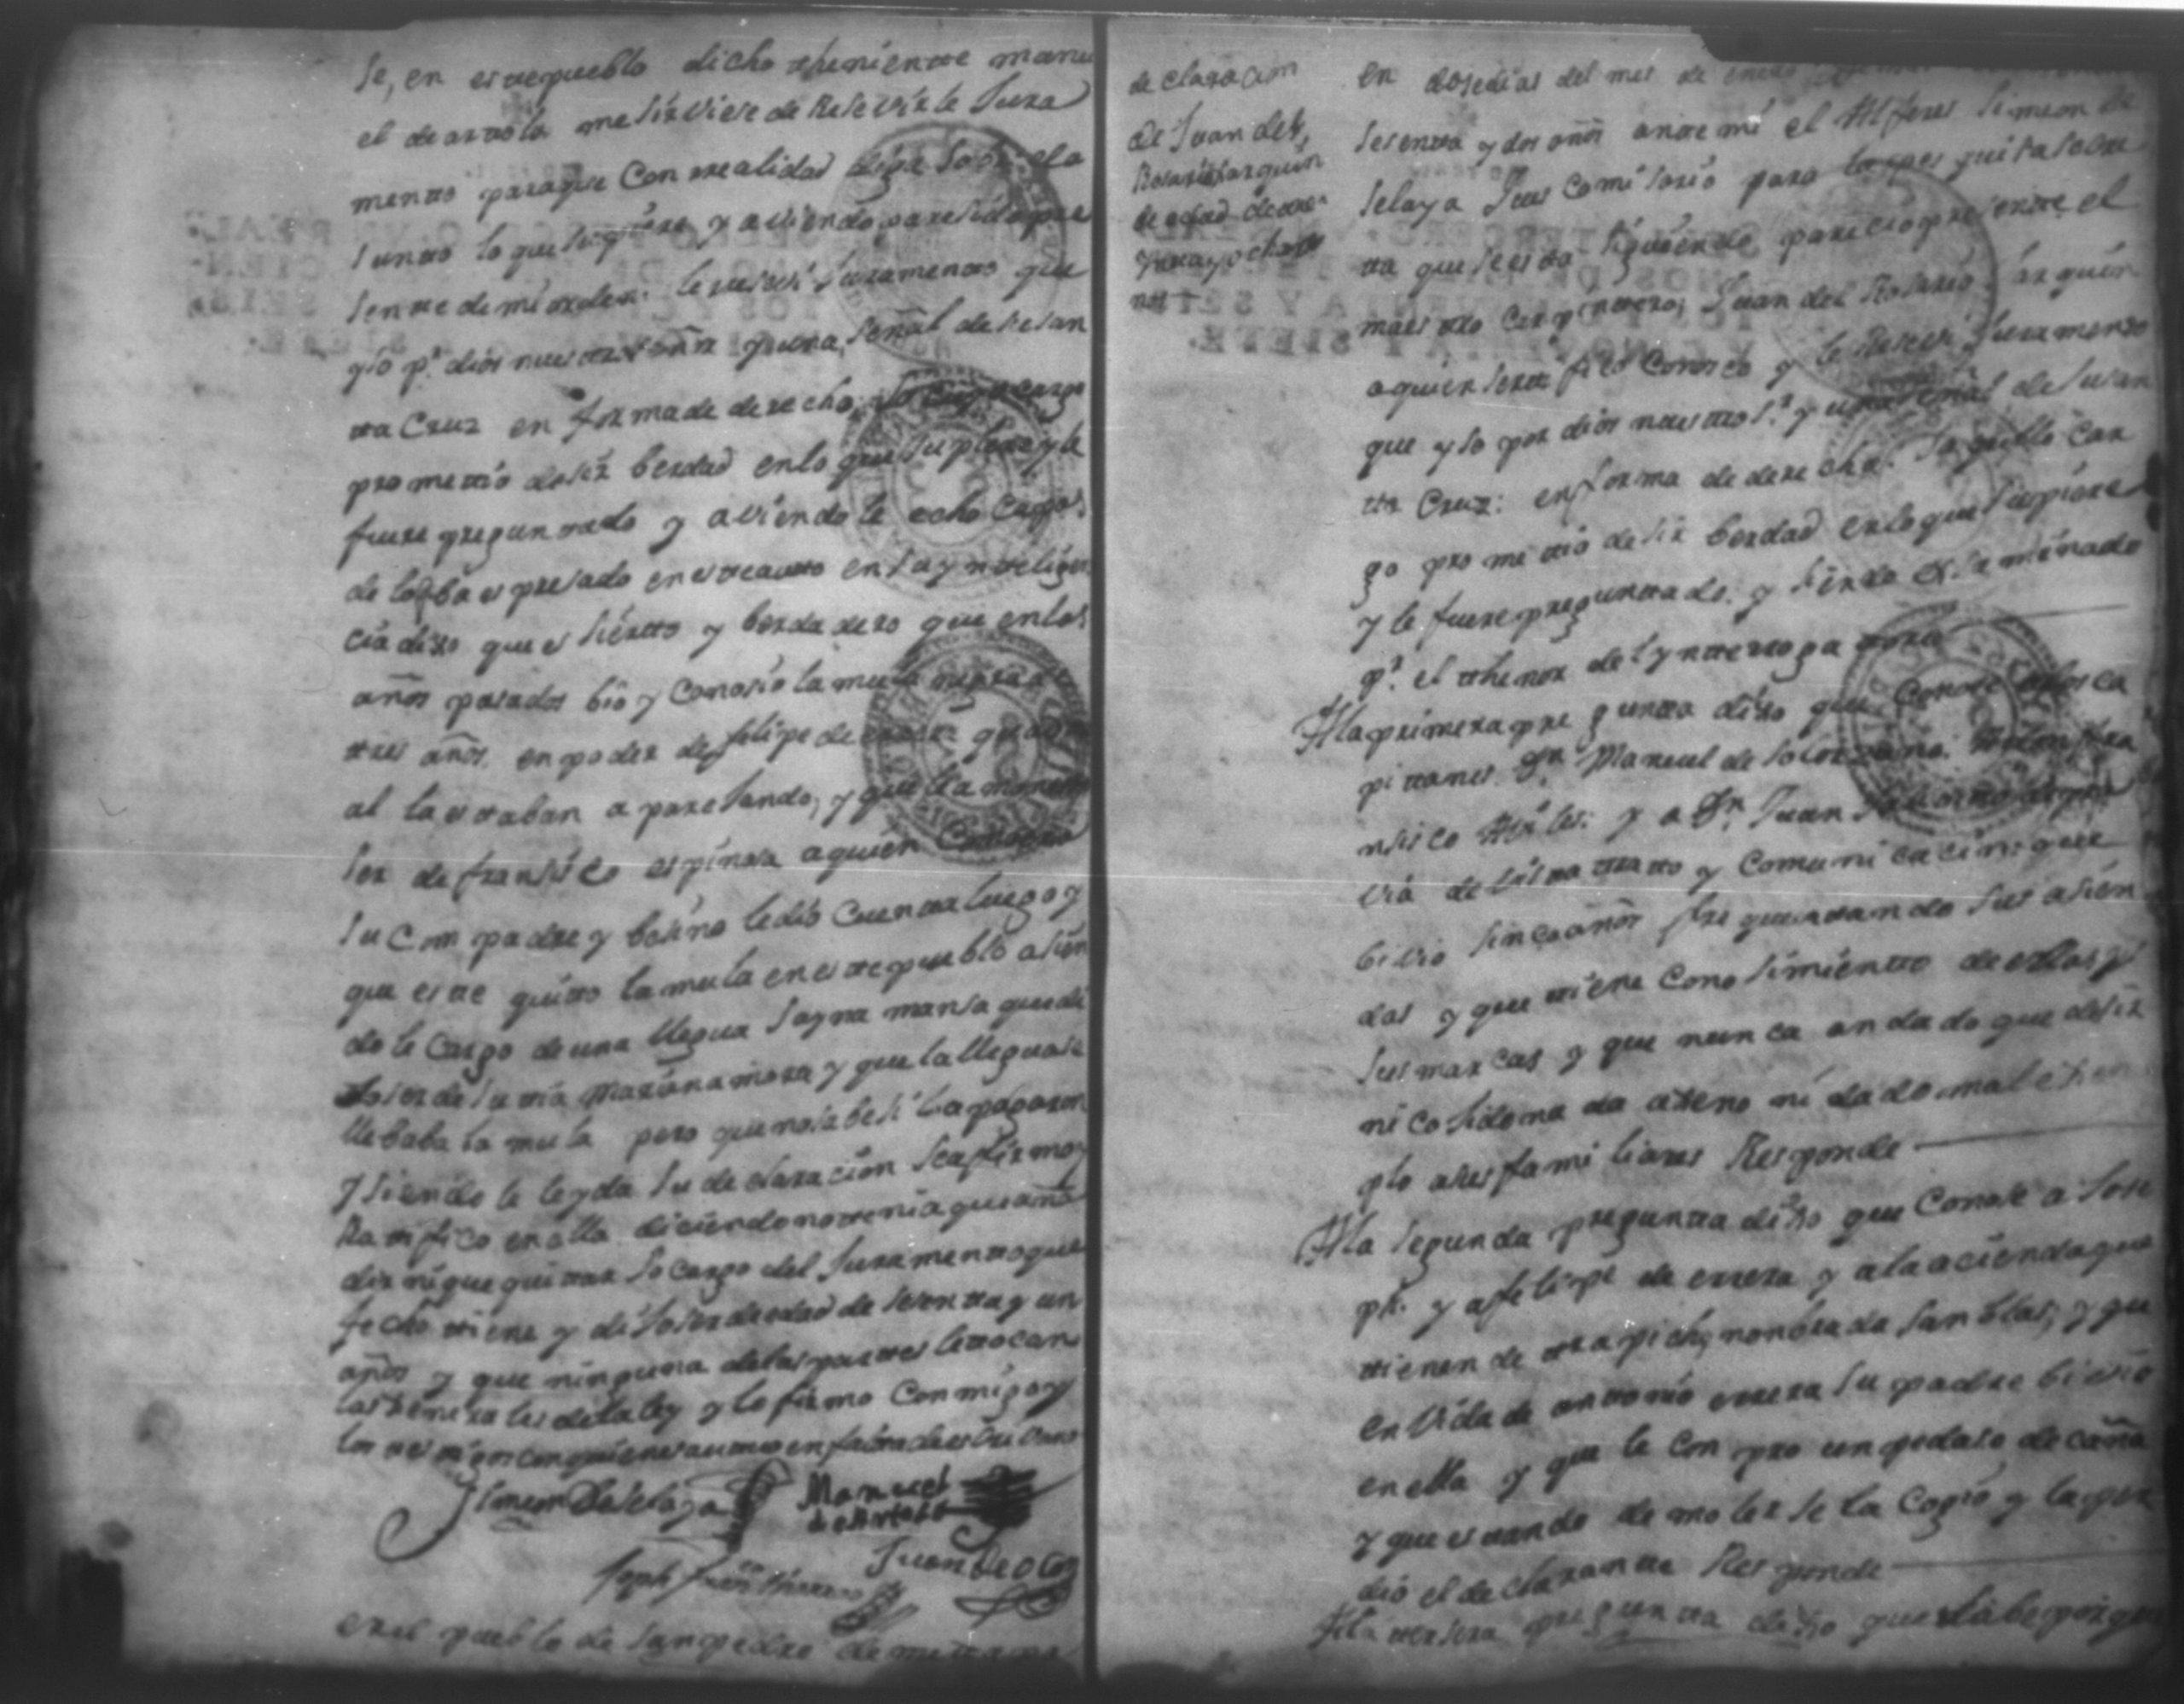 se, en este pueblo dicho theniente manu
el de artola me sirviere de Resevirle Jura
mento paraque Con realidad diga sobre el a
sunto lo que supiere y aviendo paresido pre
sente de mi orden le resevi Juramento que
yso pr. dios nuestro señor y una señal de su san
ta Cruz en forma de derecho, so cuyo cargo
prometio desir berdad en lo que supiere y le
fuere preguntado y aviendole echo Cargo
de lo espresado en este auto en su ynteligen
cia dixo que es sierto y berdadero que en los
años pasados bio y Conosio la mula
tres años, en poder de felipe de errera
al la estaban aparesando, y que la mula
ser de fransisco espinosa a quien
su Compadre y besino le dio Cuenta luego y
que este quito la mula en este pueblo asien
dole Cargo de una llegua sayna mansa que di
xo ser de su tia Mariana mora y que la llegua se
llebaba la mula pero que no sabe si la pagaron
y siendole leyda su declaracion se afirmo y
Ratifico en ella diciendo no tenia que aña
dir ni que quitar so cargo del Juramento que
fecho tiene y dixo ser de edad de sesenta y un
años y que ninguna de las partes le tocan
las Generales de la ley y lo firmo Conmigo y
los testigos con quienes autuo en falta de escribano
Simeon De Selaya Manuel
de Artola
Juan De
Joseph
en el pueblo de san pedro de
declaracion
de Juan del
Rosario farquin
de edad de
y ocho
en dose dias del mes de enero
sesenta y dos años ante mi el Alferes Simeon de
Selaya Jues Comisario para la pesquisa secre
ta que se esta siguiendo parecio presente el
maestro Carpintero, Juan del Rosario farquin
a quien sertifico Conosco y le Resevi Juramento
que yso por dios nuestro Sr. y una señal de su san
ta Cruz: en forma de derecho: so cuyo car
go prometio desir berdad en lo que supiere
y le fuere preguntado. y siendo examinado
pr. el thenor del ynterrogatorio
A la primera pregunta dixo que Conose a los ca
pitanes Dn. Manuel de Solorzano. Dn. fra
nsisco Aviles: y a Dn. Juan
via de vista trato y Comunicacion: que
bibio sinco años frequentando sus asien
das y que tiene Conosimiento de ellas y
sus marcas y que nunca an dado que desir
ni cosido nada ageno ni dado mal exen
plo a sus familiares Responde
A la segunda pregunta dixo que Conose a Jose
ph. y a felipe de errera y a la acienda que
tienen de trapiche, nonbrada san blas, y que
en vida de antonio errera su padre bibio
en ella y que le conpro un pedaso de caña
y que estando de moler se la Cogio y la per
dio el declarante Responde
A la tersera pregunta dixo que sabe por que